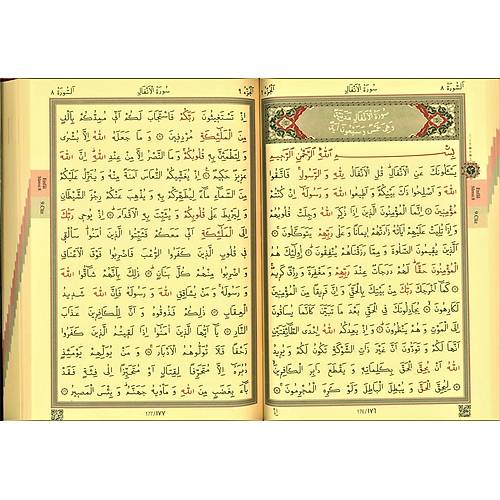 السورة ٨
سورة الأنفال
الجزء ٩
سورة الانفال مدنية
وهي خمس وسبعون آية
بسم الله الرحمن الرحيم
يَسْـَٔلُونَكَ عَنِ الْاَنْفَالِ قُلِ الْاَنْفَالُ لِلّٰهِ وَالرَّسُولِ فَاتَّقُوا
اللّٰهَ وَاَصْلِحُوا ذَاتَ بَيْنِكُمْ وَاَطِيعُوا اللّٰهَ وَرَسُولَهُ اِنْ كُنْتُمْ
مُؤْمِنِينَ ۝ اِنَّمَا الْمُؤْمِنُونَ الَّذِينَ اِذَا ذُكِرَ اللّٰهُ وَجِلَتْ قُلُوبُهُمْ
وَاِذَا تُلِيَتْ عَلَيْهِمْ اٰيَاتُهُ زَادَتْهُمْ اِيمَانًا وَعَلٰى رَبِّهِمْ يَتَوَكَّلُونَ ۝
الَّذِينَ يُقِيمُونَ الصَّلٰوةَ وَمِمَّا رَزَقْنَاهُمْ يُنْفِقُونَ ۝ اُولٰئِكَ هُمُ
الْمُؤْمِنُونَ حَقًّا لَهُمْ دَرَجَاتٌ عِنْدَ رَبِّهِمْ وَمَغْفِرَةٌ وَرِزْقٌ كَرِيمٌ ۝
كَمَا اَخْرَجَكَ رَبُّكَ مِنْ بَيْتِكَ بِالْحَقِّ وَاِنَّ فَرِيقًا مِنَ الْمُؤْمِنِينَ
لَكَارِهُونَ ۝ يُجَادِلُونَكَ فِي الْحَقِّ بَعْدَ مَا تَبَيَّنَ كَاَنَّمَا يُسَاقُونَ
اِلَى الْمَوْتِ وَهُمْ يَنْظُرُونَ ۝ وَاِذْ يَعِدُكُمُ اللّٰهُ اِحْدَى الطَّائِفَتَيْنِ
اَنَّهَا لَكُمْ وَتَوَدُّونَ اَنَّ غَيْرَ ذَاتِ الشَّوْكَةِ تَكُونُ لَكُمْ وَيُرِيدُ
اللّٰهُ اَنْ يُحِقَّ الْحَقَّ بِكَلِمَاتِهِ وَيَقْطَعَ دَابِرَ الْكَافِرِينَ ۝
لِيُحِقَّ الْحَقَّ وَيُبْطِلَ الْبَاطِلَ وَلَوْ كَرِهَ الْمُجْرِمُونَ ۝
١٧٦
الجزء ٩
سورة الأنفال
السورة ٨
اِذْ تَسْتَغِيثُونَ رَبَّكُمْ فَاسْتَجَابَ لَكُمْ اَنِّي مُمِدُّكُمْ بِاَلْفٍ
مِنَ الْمَلٰئِكَةِ مُرْدِفِينَ ۝ وَمَا جَعَلَهُ اللّٰهُ اِلَّا بُشْرٰى
وَلِتَطْمَئِنَّ بِهِ قُلُوبُكُمْ وَمَا النَّصْرُ اِلَّا مِنْ عِنْدِ اللّٰهِ اِنَّ اللّٰهَ
عَزِيزٌ حَكِيمٌ ۝ اِذْ يُغَشِّيكُمُ النُّعَاسَ اَمَنَةً مِنْهُ وَيُنَزِّلُ عَلَيْكُمْ
مِنَ السَّمَاءِ مَاءً لِيُطَهِّرَكُمْ بِهِ وَيُذْهِبَ عَنْكُمْ رِجْزَ الشَّيْطَانِ
وَلِيَرْبِطَ عَلٰى قُلُوبِكُمْ وَيُثَبِّتَ بِهِ الْاَقْدَامَ ۝ اِذْ يُوحِي رَبُّكَ
اِلَى الْمَلٰئِكَةِ اَنِّي مَعَكُمْ فَثَبِّتُوا الَّذِينَ اٰمَنُوا سَاُلْقِي
فِي قُلُوبِ الَّذِينَ كَفَرُوا الرُّعْبَ فَاضْرِبُوا فَوْقَ الْاَعْنَاقِ
وَاضْرِبُوا مِنْهُمْ كُلَّ بَنَانٍ ۝ ذٰلِكَ بِاَنَّهُمْ شَاقُّوا اللّٰهَ
وَرَسُولَهُ وَمَنْ يُشَاقِقِ اللّٰهَ وَرَسُولَهُ فَاِنَّ اللّٰهَ شَدِيدُ
الْعِقَابِ ۝ ذٰلِكُمْ فَذُوقُوهُ وَاَنَّ لِلْكَافِرِينَ عَذَابَ
النَّارِ ۝ يَا اَيُّهَا الَّذِينَ اٰمَنُوا اِذَا لَقِيتُمُ الَّذِينَ كَفَرُوا
زَحْفًا فَلَا تُوَلُّوهُمُ الْاَدْبَارَ ۝ وَمَنْ يُوَلِّهِمْ يَوْمَئِذٍ
دُبُرَهُ اِلَّا مُتَحَرِّفًا لِقِتَالٍ اَوْ مُتَحَيِّزًا اِلٰى فِئَةٍ فَقَدْ
بَاءَ بِغَضَبٍ مِنَ اللّٰهِ وَمَأْوٰيهُ جَهَنَّمُ وَبِئْسَ الْمَصِيرُ ۝
١٧٧